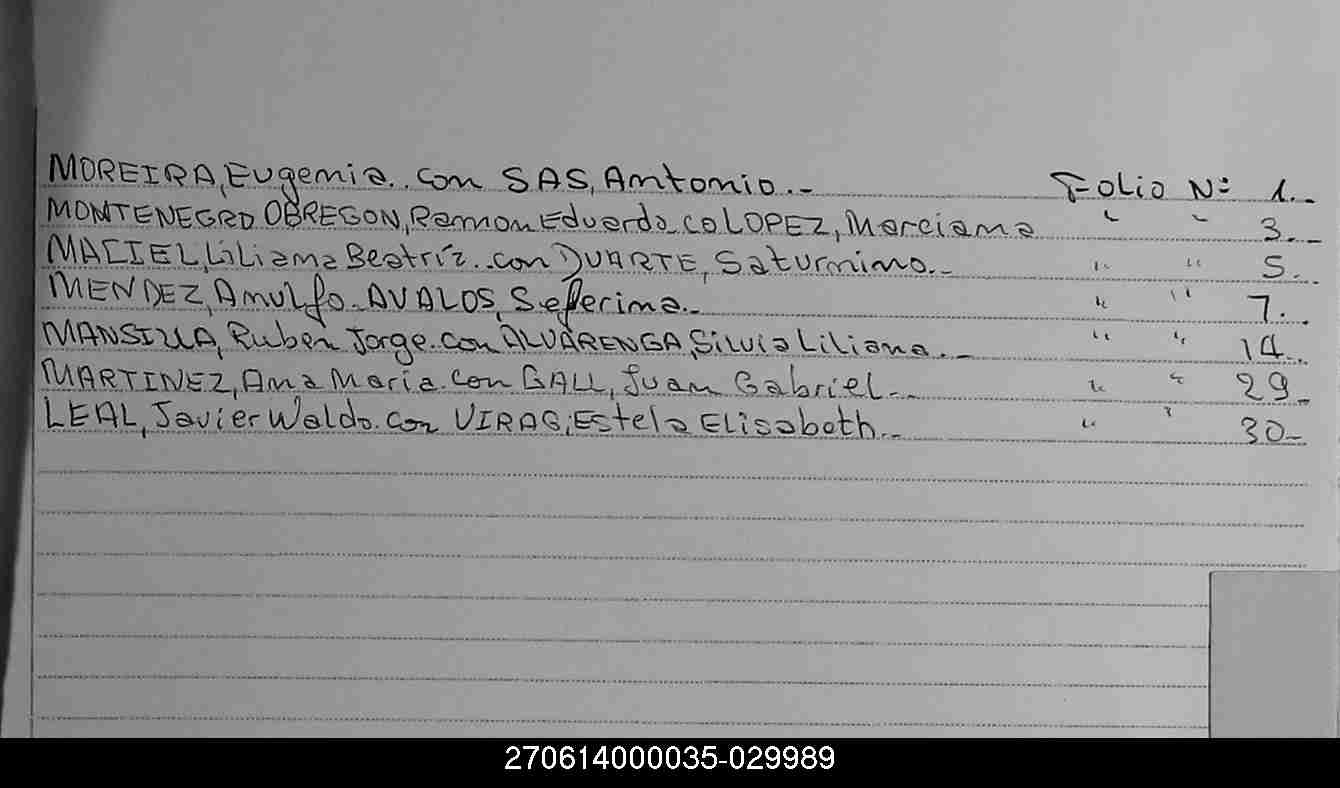 MOREIRA, Eugenia.. con SAS, Antonio.- Folio Nº 1..
MONTENEGRO OBREGON, Ramon Eduardo co LOPEZ, Marciana " " 3.-
MACIEL, Liliana Beatríz.. con DUARTE, Saturnino.- " " 5.
MENDEZ, Arnulfo. AVALOS, Seferina.- " " 7..
MANSILLA, Ruben Jorge. con ALVARENGA, Silvia Liliana.- " " 14..
MARTINEZ, Ana Maria. con GALL, Juan Gabriel.- " " 29-
LEAL, Javier Waldo. con VIRAG, Estela Elisabeth.- " " 30-
270614000035-029989